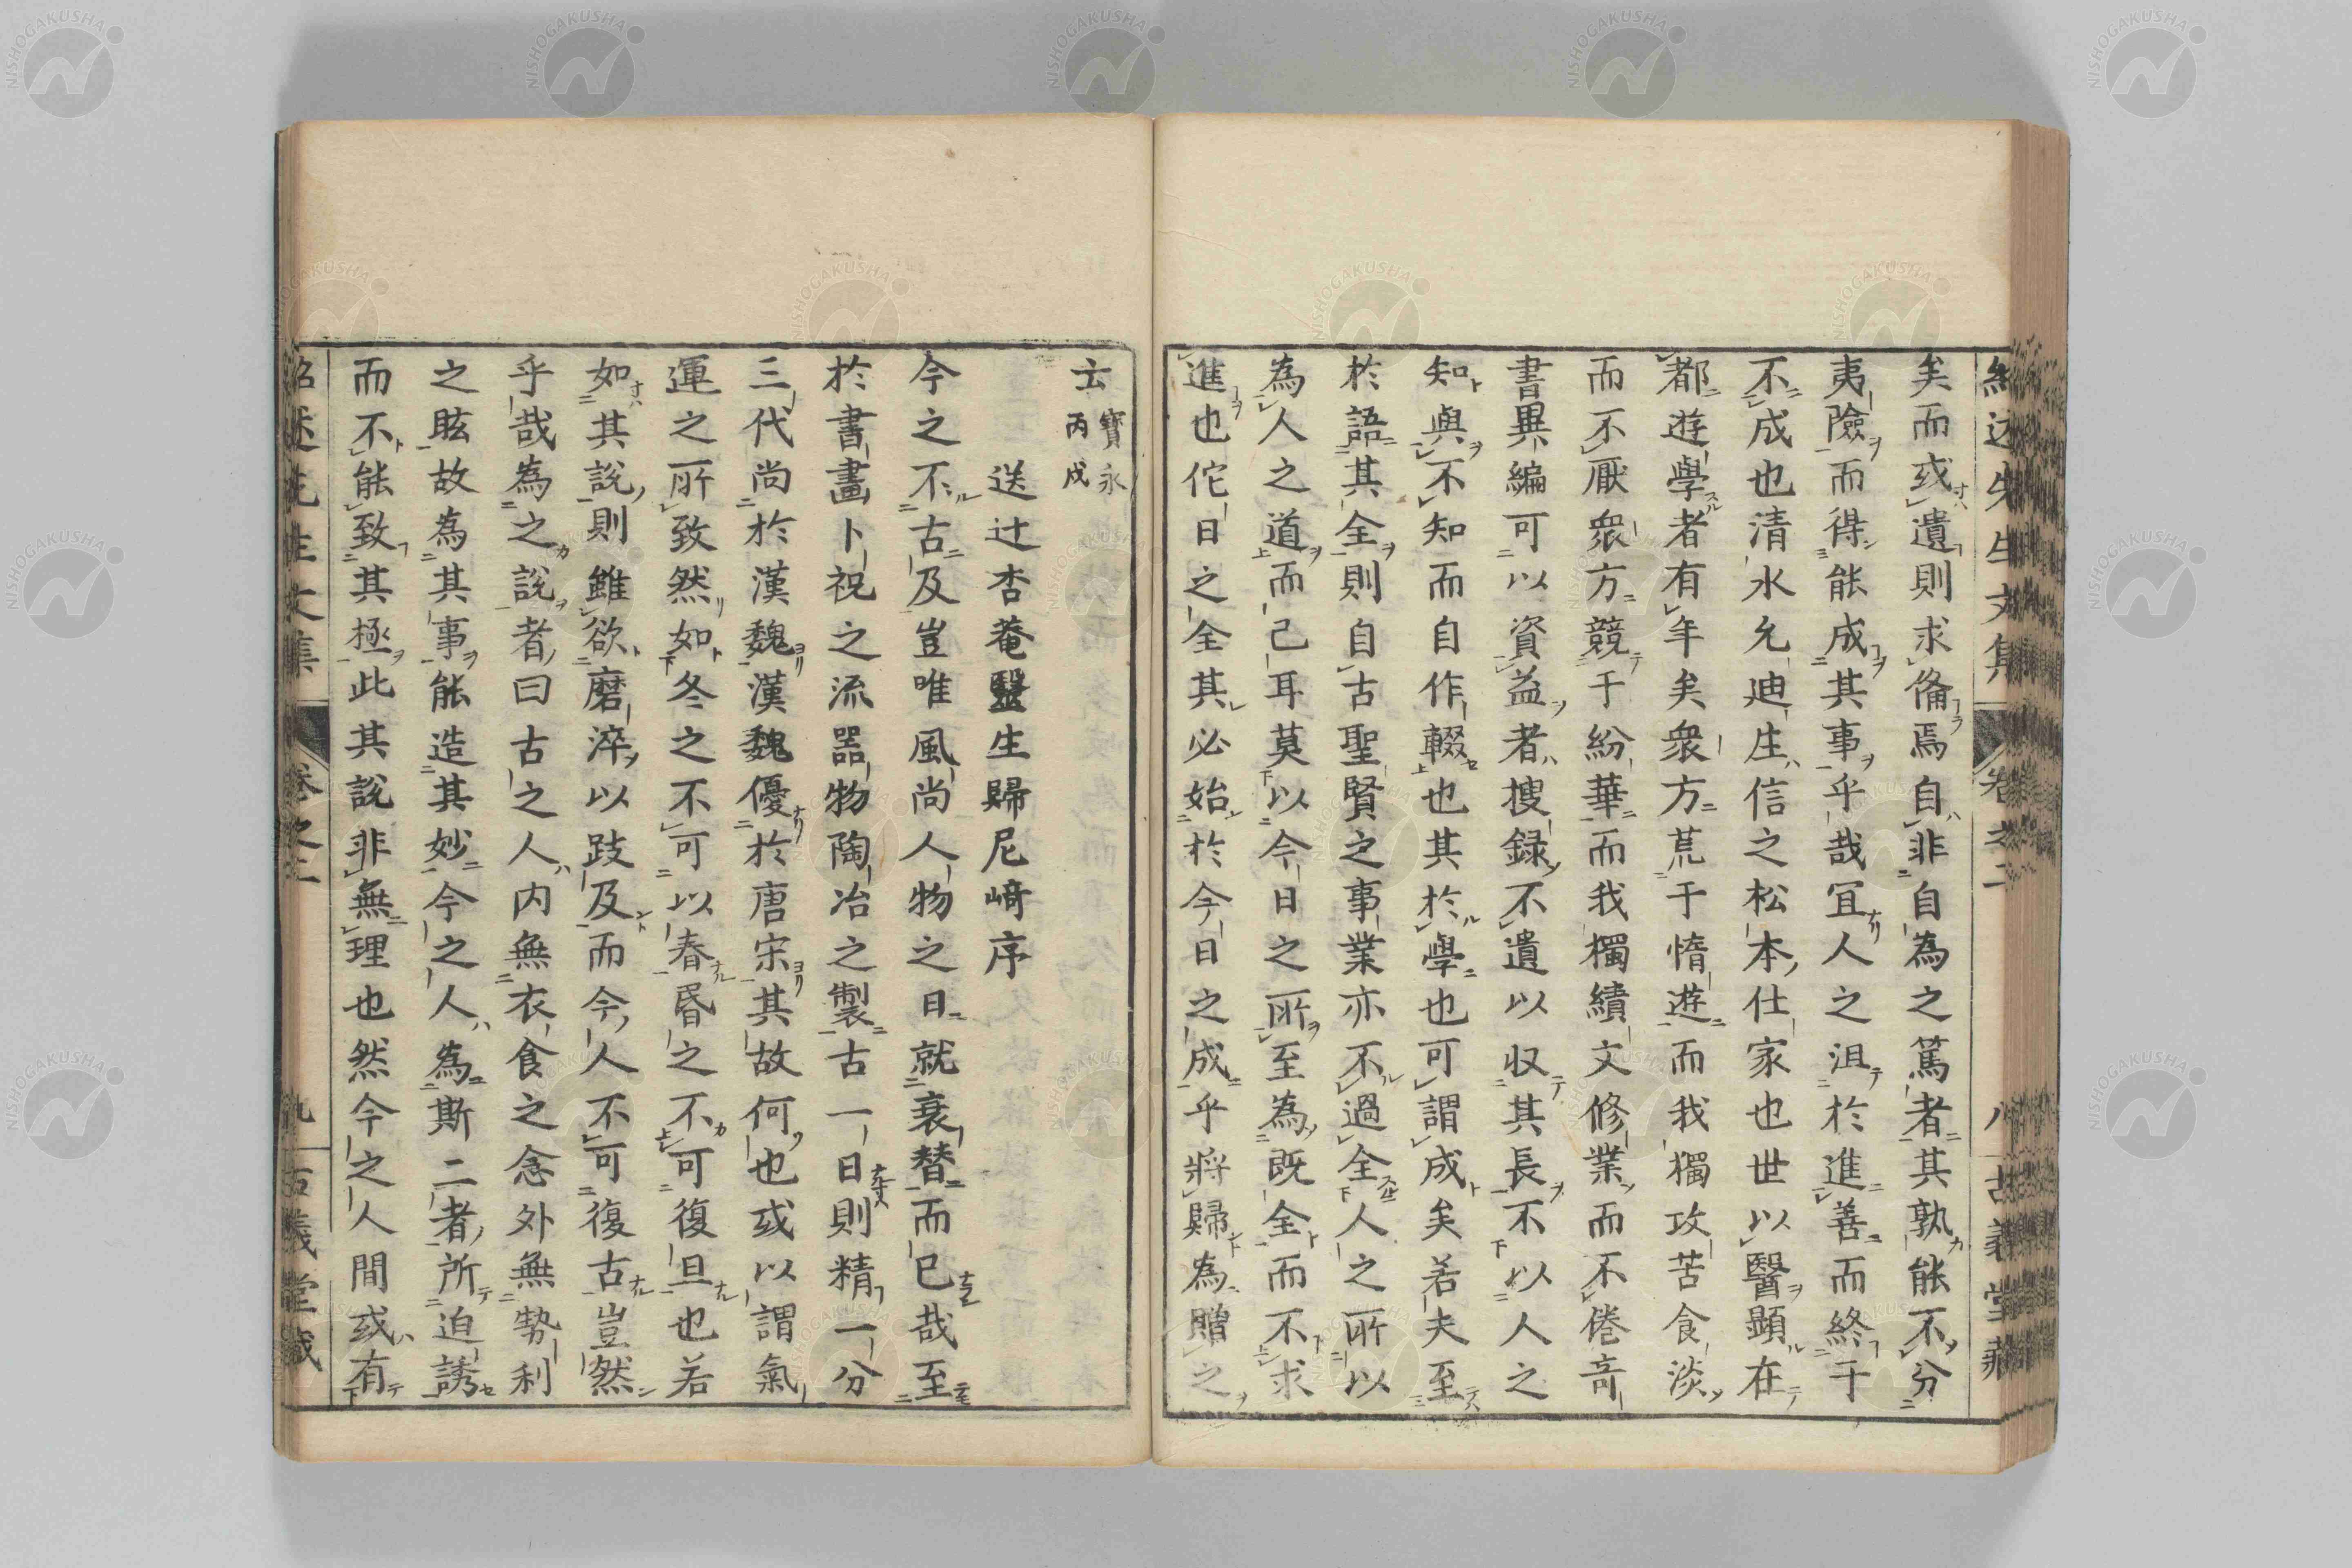 紹述先生文集 卷之二 八 古義堂藏
矣而或遺則求備焉自非自為之篤者其孰能不分
夷險而得能成其事乎哉宜人之沮於進善而終于
不成也清水允迪生信之松本仕家也世以醫顕在
都遊學者有年矣衆方荒于惰遊而我獨攻苦食淡
而不厭衆方競于紛華而我獨績文修業而不倦奇
書異編可以資益者搜録不遺以収其長不以人之
知與不知而自作輟也其於學也可謂成矣若夫至
於語其全則自古聖賢之事業亦不過全人之所以
為人之道而己耳莫以今日之所至為既全而不求
進也佗日之全其必始於今日之成乎將歸為贈之
云 寶永丙戌
送辻杏菴毉生歸尼﨑序
今之不古及豈唯風尚人物之日就衰替而已哉至
於書畫卜祝之流噐物陶冶之製古一日則精一分
三代尚於漢魏漢魏優於唐宋其故何也或以謂氣
運之所致然如冬之不可以春昬之不可復旦也若
如其說則雖欲磨淬以跂及而今人不可復古豈然
乎哉為之說者曰古之人内無衣食之念外無勢利
之眩故為其事能造其妙今之人為斯二者所迫誘
而不能致其極此其說非無理也然今之人間或有
紹述先生文集 卷之二 九 古義堂藏
NISHOGAKUSHA